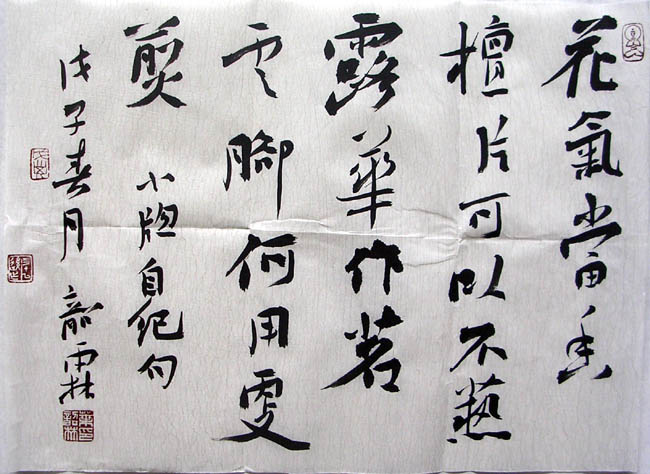 花氣當香
檀片可以不爇
露華作茗
云腳何用更
煎 小牕自紀句
戊子春月 韶霖